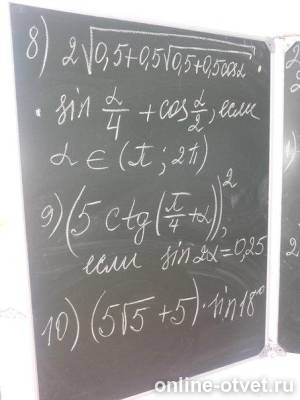 8) 2√(0,5+0,5√(0,5+0,5cosα)) ·
· sin α/4 + cos α/2, если
α ∈ (π; 2π)
9) (5 ctg(π/4+α))²,
если sin2α=0,25
10) (5√5+5)·sin18°
online-otvet.ru